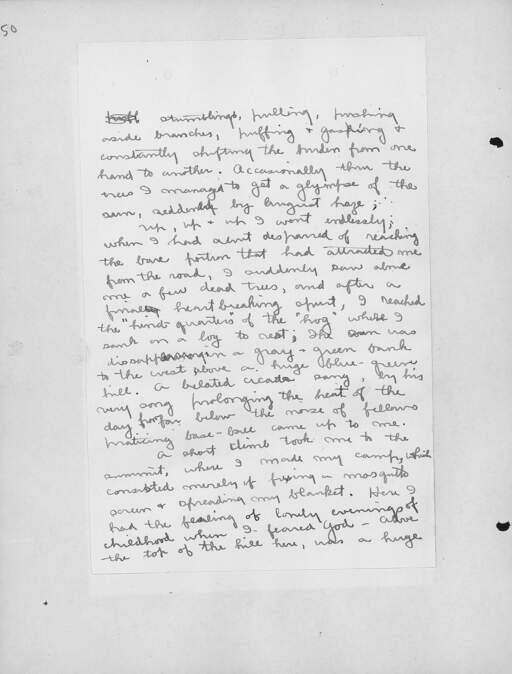 50
stumblings, pulling, pushing
aside branches, puffing + gasping +
constantly shifting the burden from one
hand to another. Accasionally thru the
trees I managed to get a glympse of the
sun, reddened by August haze;
Up, up + up I went endlessly;
when I had about despared of reaching
the bare portion that had attracted me
from the road, I suddenly saw above
me a few dead trees, and after a
final heart breaking spurt, I reached
the "hind quarters" of the "hog" where I
sank on a log to rest; The sun was
dissappearing in a gray + green bank
to the west above a huge blue-green
hill. A belated cicada sang, by his
very song prolonging the heat of the
day from far below the noise of fellows
praticing base-ball came up to me.
A short climb took me to the
summit, where I made my camp, which
consisted merely of fixing a mosquito
screen + spreading my blanket. Here I
had the feeling of lonely evenings of
childhood when I feared God - Above
the top of the hill here, was a huge